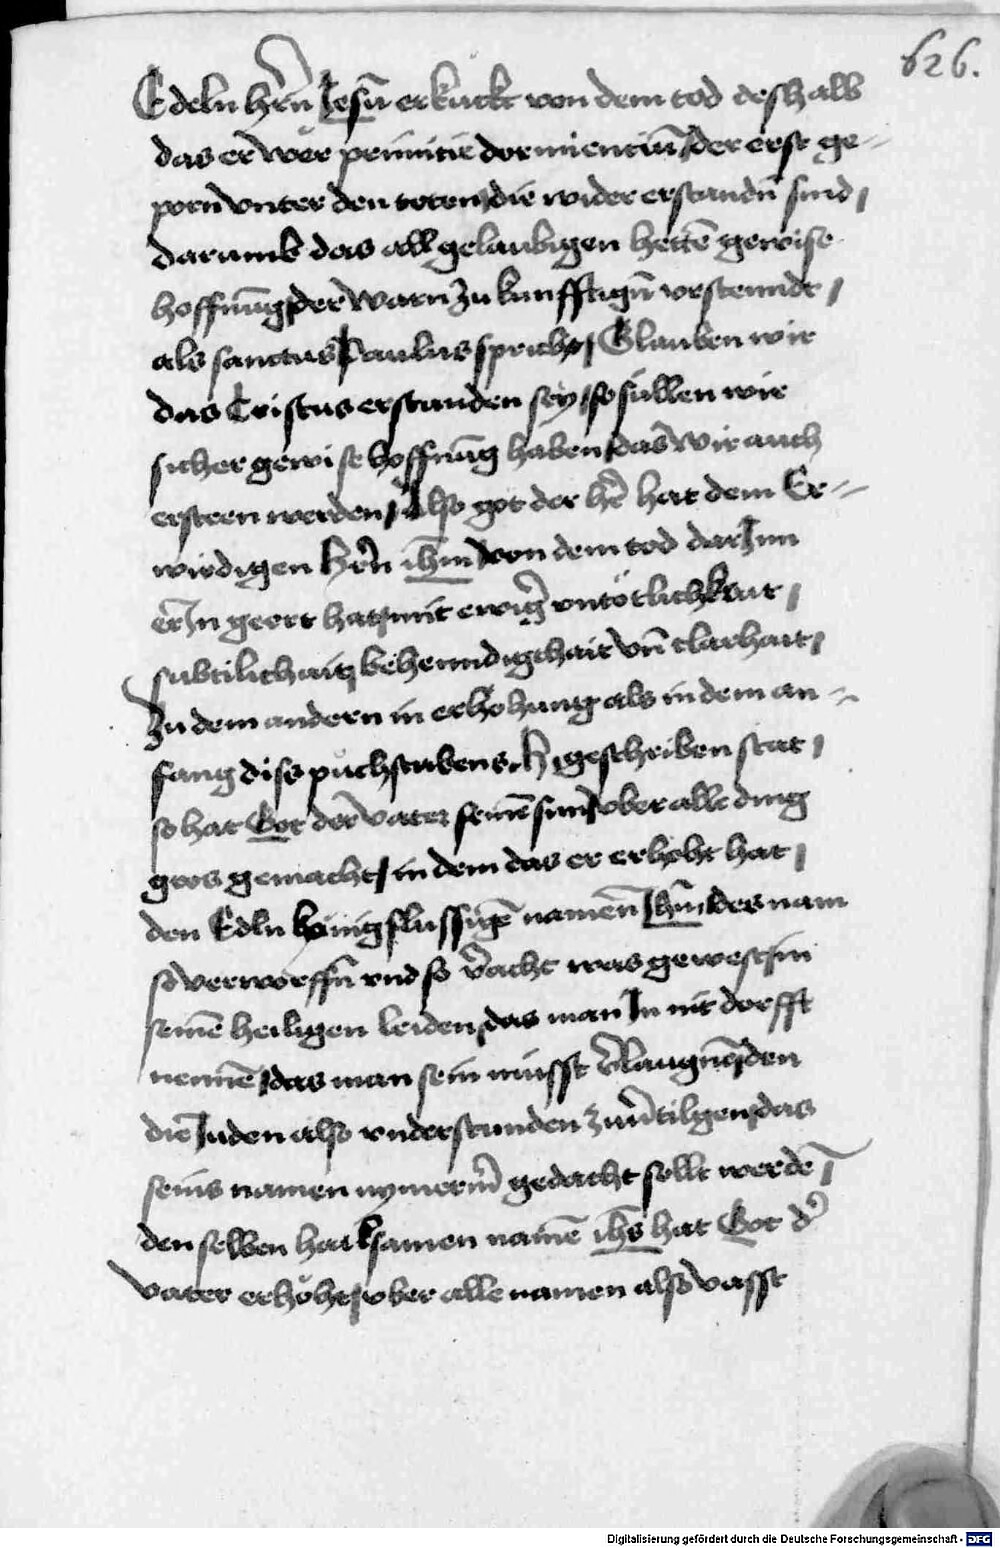 626.
Edeln hrn̄ Jesu᷑ erkuckt von dem tod deshalb
das er wer primitie dormientiu᷑ der erst ge=
porn vnter den toten / die wider erstandn̄ sind /
darumb das all gelaubigen hettē gewise
hoffnu᷑g der warn zukunfftign̄ vrstennde /
als sanctus Paulus spricht / Glauben wir
das Cristus erstanden sey / so süllen wir
sicher gewise hoffnu᷑g haben / das wir auch
ersteen werden / Also got der hr̄ hat dem Er=
wirdigen hrn̄ ihm̄ von dem tod dar Inn
er In geert hat / mit ewig᷑ vntötlichkait /
subtilichait / behenndigchait vn̄ clarhait /
Zu dem andern in erhöhung als in dem an=
fang diss puchstabens .h. geschriben stat /
so hat Got der vater seinē sun vber alle ding
gros gemacht / in dem das er erhöht hat /
den Edln honigflussigē namen̄ Jhm̄ des nam
so verworffn̄ vnd so v᷑acht was gewest / in
seinē heiligen leiden / das man In nit dorfft
nennē / das man sein musst v᷑laugnē / den
die Juden also vnderstunden zu v᷑tilgen / das
seins namen nymerm᷑ gedacht sollt werdē /
den selben hailsamen namē ihs̄ hat Got d᷑
vater erhöht / vber alle namen also vasst
Digitalisierung gefördert durch die Deutsche Forschungsgemeinschaft - DFG